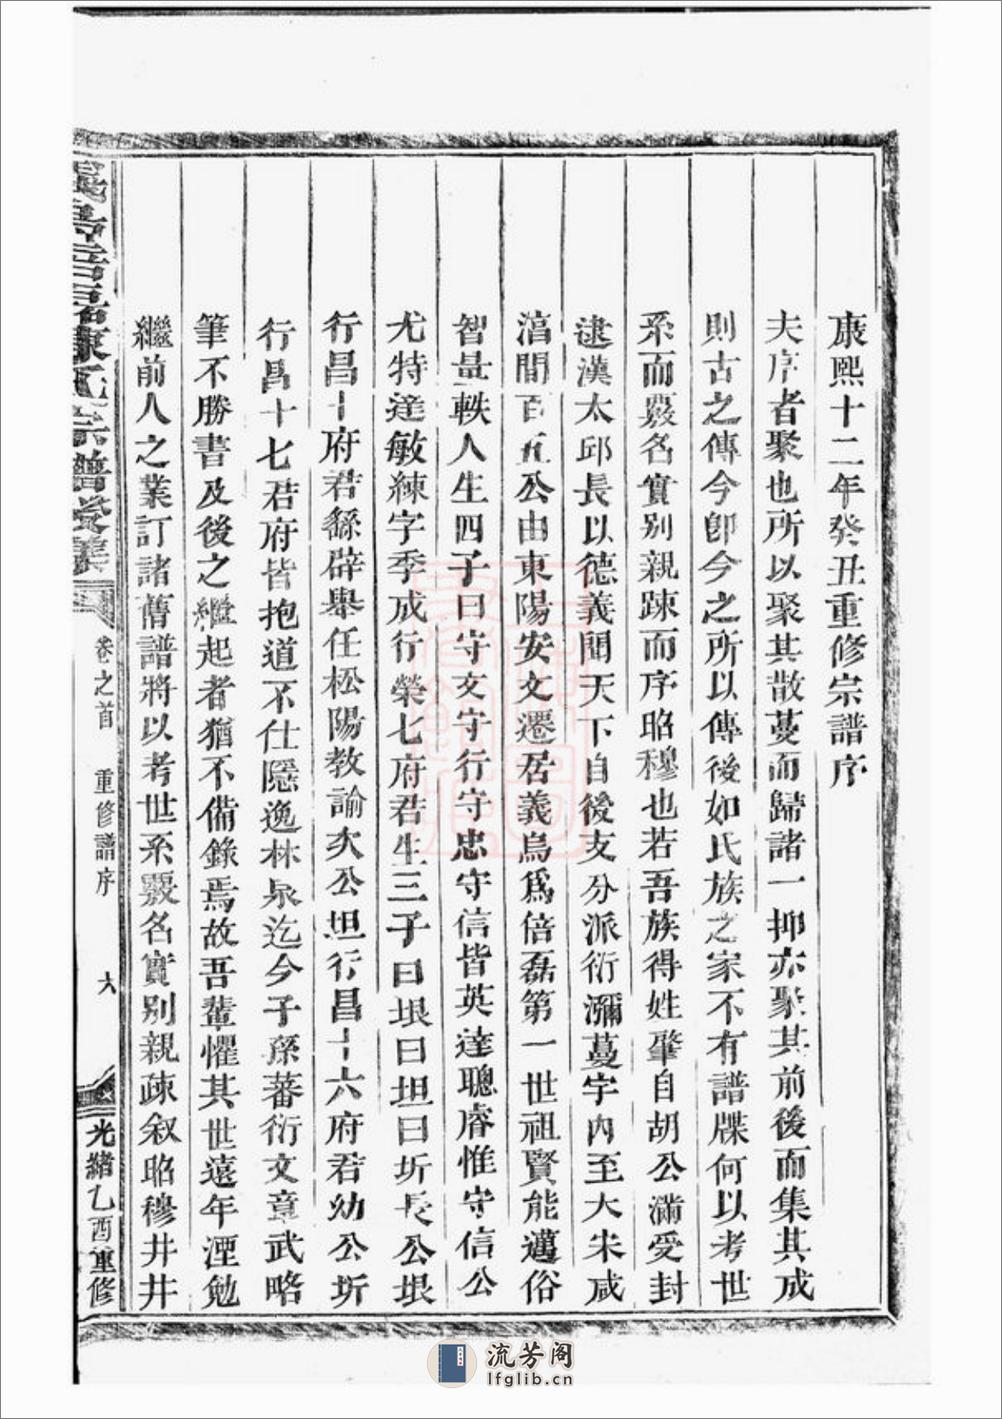 康熙十二年癸丑重修宗譜序
夫序者聚也所以聚其散蔓而歸諸一抑亦聚其前後而集其成
則古之傳今卽今之所以傳後如氏族之家不有譜牒何以考世
系而覈名實别親踈而序昭穆也若吾族得姓肇自胡公滿受封
逮漢太邱長以德義聞天下自後支分派衍瀰蔓宇内至大宋咸
淳間百五公由東陽安文遷居義烏爲倍磊第一世祖賢能邁俗
智量軼人生四子曰守文守行守忠守信皆英達聰睿惟守信公
尤特達敏練字季成行榮七府君生三子曰垠曰坦曰圻長公垠
行昌十府君繇辟舉任松陽教諭次公坦行昌十六府君幼公圻
行昌十七君府皆抱道不仕隱逸林泉迄今子孫蕃衍文章武略
筆不勝書及後之繼起者猶不備錄焉故吾輩懼其世遠年湮勉
繼前人之業訂諸舊譜將以考世系覈名實别親疎叙昭穆井井
陳氏宗譜
卷之首 重修譜序 六
光緒乙酉重修
流芳阁
lfglib.cn